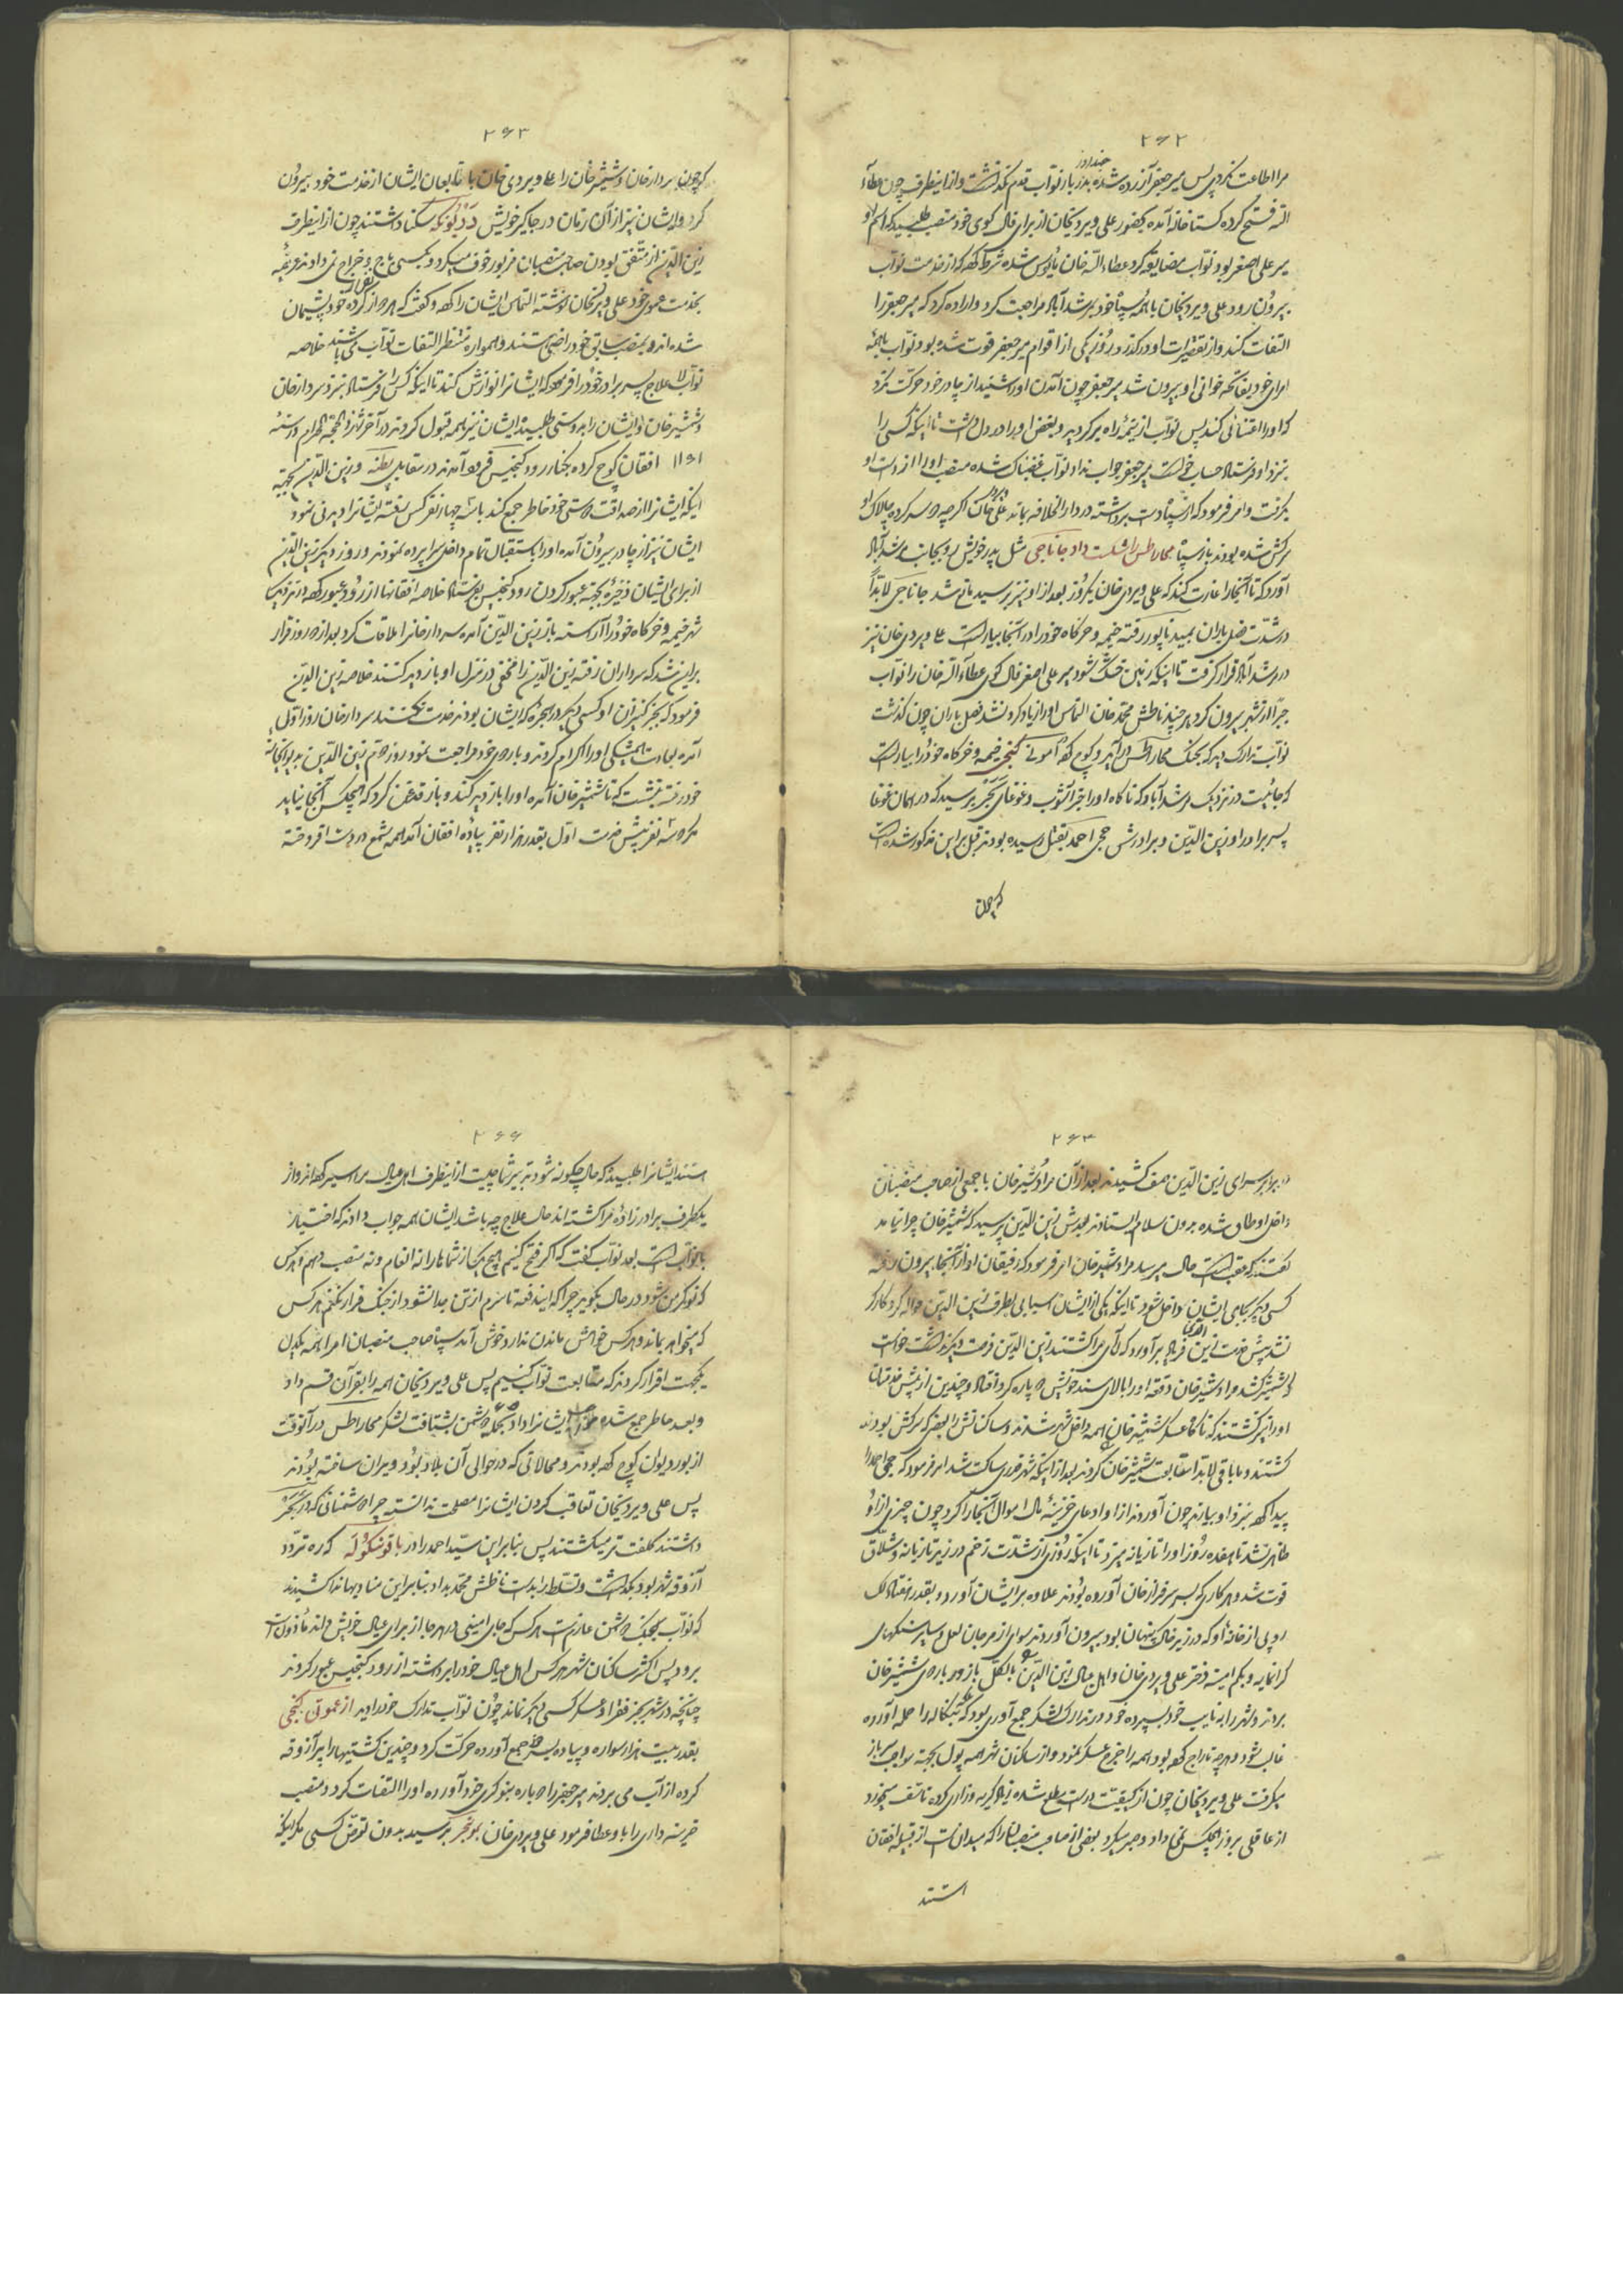 ۲۶۲
مرا اطاعت نکرد پس میر جعفر آزرده شده چند روز بدربار نواب قدم نگذاشت و از اینطرف چون عطاء
الله فتح کرده گستاخانه آمده بحضور علی ویردیخان از برای فال کوی خود منصب طلبید که اسم او
میر علی اصغر بود نواب مضایقه کرد عطاء الله خان مأیوس شده شرط کهه که از خدمت نواب
بیرون رود علی ویردیخان با همه سپاه خود بمرشدآباد مراجعت کرد و اراده کرد که میر جعفر را
التفات کند و از تقصیرات او درگذرد روزی یکی از اقوام میر جعفر فوت شده بود نواب با همه
امرای خود بفاتحه خوانی او بیرون شد میر جعفر چون آمدن او را شنید از چادر خود حرکت نکرد
که او را اعتنائی کند پس نواب از نیمه راه برگردید و بغض او را در دل داشت تا اینکه کسی را
بنزد او فرستاد حساب خواست میر جعفر جواب نداد نواب غضبناک شده منصب او را از دست او
گرفت و امر فرمود که از سپاه دست برداشته در دار الخلافه بماند علی ویردی خان اگرچه سر کرده چالاک او
سرکش شده بودند باز سپاه محاراطس را شکست داد جاناجی مثل پدر خویش رو بجانب مرشدآباد
آورد که تا آنجا را غارت کند که علی ویردی خان یکروز بعد از او نیز برسید مانع شد جاناجی لابداً
در شدت فصل باران بمیدناپور رفته خیمه و خرگاه خود را در آنجا بیاراست علی ویردی خان نیز
در مرشدآباد قرار گرفت تا اینکه زمین خشک شود میر علی اصغر فال کوی عطاء الله خان را نواب
جبراً از شهر بیرون کرد هر چند ناطش محمد خان التماس او را زیاد کرد نشد فصل باران چون گذشت
نواب تدارک دید که بجنگ محاراطس درآید و کوچ کهه آمونی گنجی خیمه و خرگاه خود را بیاراست
که جائیست در نزدیک مرشدآباد که ناگاه او را خبر آشوب و غوغای برسید که در همان غوغا
پسر برادر او زین الدین و برادرش حجی احمد بقتل رسیده بودند قبل بر این مذکور شده است
که چون
۲۶۳
که چون سردار خان و شمشیر خان را علی ویردی خان با تابعان ایشان از خدمت خود بیرون
کرد و ایشان نیز از آن زمان در جاگیر خویش سکنا داشتند چون از اینطرف
زین الدین از متفق بودن صاحب منصبان مزبور خوف میکرد و بکسی باج و خراج نمی دادند عریضه
بخدمت عموی خود علی ویردیخان نوشته التماس ایشان را کهه و گفت که هر دو از کرده خود پشیمان
شده اند و بمنصب سابق خود راضی هستند و همواره منتظر التفات نواب می باشند خلاصه
نواب لا علاج پسر برادر خود را فرمود که ایشان را نوازش کند تا اینکه کس فرستاد بنزد سردار خان
و شمشیر خان و ایشان را بدوستی طلبید ایشان نیز همه قبول کردند در آخر شهر ذی الحجه الحرام در سنه
۱۱۶۱ افغان کوچ کرده بکنار رود کنجیس فرود آمدند در مقابل پطنه و زین الدین بجهت
اینکه ایشان را از صداقت دوستی خود خاطر جمع کند با سه چهار نفر کس رفته ایشان را دیدنی نمود
ایشان نیز از چادر بیرون آمده او را باستقبال تمام داخل سراپرده نمودند و روز دیگر زین الدین
از برای ایشان ذخیره بجهت عبور کردن رود کنجیس بفرستاد خلاصه افغانها از رود عبور کهه در نزدیک
شهر خیمه و خرگاه خود را آراسته باز زین الدین آمده سردار خان را ملاقات کرد بعد از دو روز قرار
بر این شد که سرداران رفته زین الدین را مخفی در منزل او بازدید کنند خلاصه زین الدین
فرمود که بجز کنیزان او کسی دیگر در حجره که ایشان بودند خدمت نکنند سردار خان روز اول
آمده بعادت پیشکی او را اکرام کردند و باردوی خود مراجعت نمود روز دوم زین الدین بدیوانخانه
خود رفته بنشست که تا شمشیر خان آمده او را بازدید کند و باز قدغن کرد که هیچکس آنجا نیاید
مگر دو سه نفر پیش خدمت اول بقدر هزار نفر پیاده افغان آمد همه شمع در دست افروخته
۲۶۴
در برابر سرای زین الدین صف کشیدند بعد از آن مراد شیر خان با جمعی از صاحب منصبان
داخل اوطاق شده بدون سلام ایستادند بعدش زین الدین پرسید که شمشیر خان چرا نیامد
گفتند که عقب است حال میرسد مراد شیر خان امر فرمود که رفیقان او از آنجا بیرون رفته
کسی دیگر بجای ایشان داخل شود تا اینکه یکی از ایشان اسیابی بطرف زین الدین حواله کرد کارگر
نشد پیش خدمت زین الدین فریاد برآورد که آی مرا کشتند زین الدین فرصت دیگر نداشت خواست
که شمشیر کشد مراد شیر خان دفعة او را بالای مسند خویش دو پاره کرد افتاد و چندین از پیش خدمتان
او را نیز کشتند که ناگاه عسکر شمشیر خان همه داخل شهر شدند و ساکنانش را بعضی که سرکش بودند
کشتند و ما باقی لابد اسقابعت شمشیر خان کردند بعد از اینکه شهر قدری ساکت شد امر فرمود که حجی احمد را
پیدا کهه بنزد او بیارند چون آوردند از او ادعای خزینه مال اموال آنجا را کرد چون چیزی از او
ظاهر نشد تا هفده روز او را تازیانه میزد تا اینکه روزی از شدت زخم در زیر تازیانه و شلاق
فوت شد و هر کاری که بسر سرفراز خان آورده بودند علاوه بر ایشان آورد و بقدر هفتاد لک
روپی از خانه او که در زیر خاک پنهان بود بیرون آوردند سوای از مرجان لعل و سایر سنگهای
گرانمایه و بکم امینه دختر علی ویردی خان و اهل عیال زین الدین بالکل بازور باردوی شمشیر خان
بردند و شهر را به نایب خود بسپرده خود در تدارک لشکر جمع آوری بود که بنگاله را حمله آورده
غالب شود و هرچه تاراج کهه بود همه را خرج عسکر نمود و از ساکنان شهر همه پول بجهة مواجب سرباز
میگرفت علی ویردیخان چون از کیفیت درست مطلع شده زیاد گریه و زاری کرده تأسف میخورد
از عاقلی بروز هیچکس نمی داد و جبر میکرد بعضی از صاحب منصبان را که میدانست از قبیله افغان
استند
۲۶۵
استند ایشان را طلبید که حال چگونه شود تدبیر شما چیست از اینطرف اهل عیال مرا اسیر کهه اند و از
یکطرف برادر زاده مرا کشته اند حال علاج چه باشد ایشان همه جواب دادند که اختیار
با نواب است بعد نواب گفت که اگر فتح کنیم هیچ یک از شماها را نه انعام و نه منصب دهم هر کس
که نوکر من شود در حال بگوید چرا که ایندفعه تا سرم از تن جدا نشود از جنگ فرار نکنم هر کس
که میخواهد بماند و هر کس خواهش ماندن ندارد خوش آمد سپاه صاحب منصبان امرا همه یکدل
یکجهت اقرار کردند که متابعت نواب کنیم پس علی ویردیخان همه را بقرآن قسم داد
و بعد خاطر جمع شده ایشان را داد بجنگ دشمن بشتافت لشکر محاراطس در آنوقت
از بوردیوان کوچ کهه بودند و محالاتی که در حوالی آن بلاد بود ویران ساخته بودند
پس علی ویردیخان تعاقب کردن ایشان را مصلحت ندانسته چرا دشمنانی که در
داشتند کلفت تر میگشتند پس بنابراین سید احمد را در باقونکوله که ره تردد
آزوقه شهر بود بگذاشت و تسلط را بدست ناطش محمد بداد بنابراین مناديها ندا کشیدند
که نواب بجنگ دشمن عازم است هر کس که جای امینی در هر جا از برای عیال خویش داند مأذونست
برود پس اکثر ساکنان شهر هر کس اهل عیال خود را برداشته از رود کنجیس عبور کردند
چنانچه در شهر بجز فقرا و عسکر کسی دیگر نماند چون نواب تدارک خود را دید از عمونی گنجی
بقدر بیست هزار سواره و پیاده بسر خود جمع آورده حرکت کرد و چندین کشتیها را پر آزوقه
کرده از آب می بردند میر جعفر را دوباره بنوکری خود آورده او را التفات کرد و منصب
خزینه داری را باو عطا فرمود علی ویردی خان بوغجر برسید بدون تعرض کسی مگر اینکه